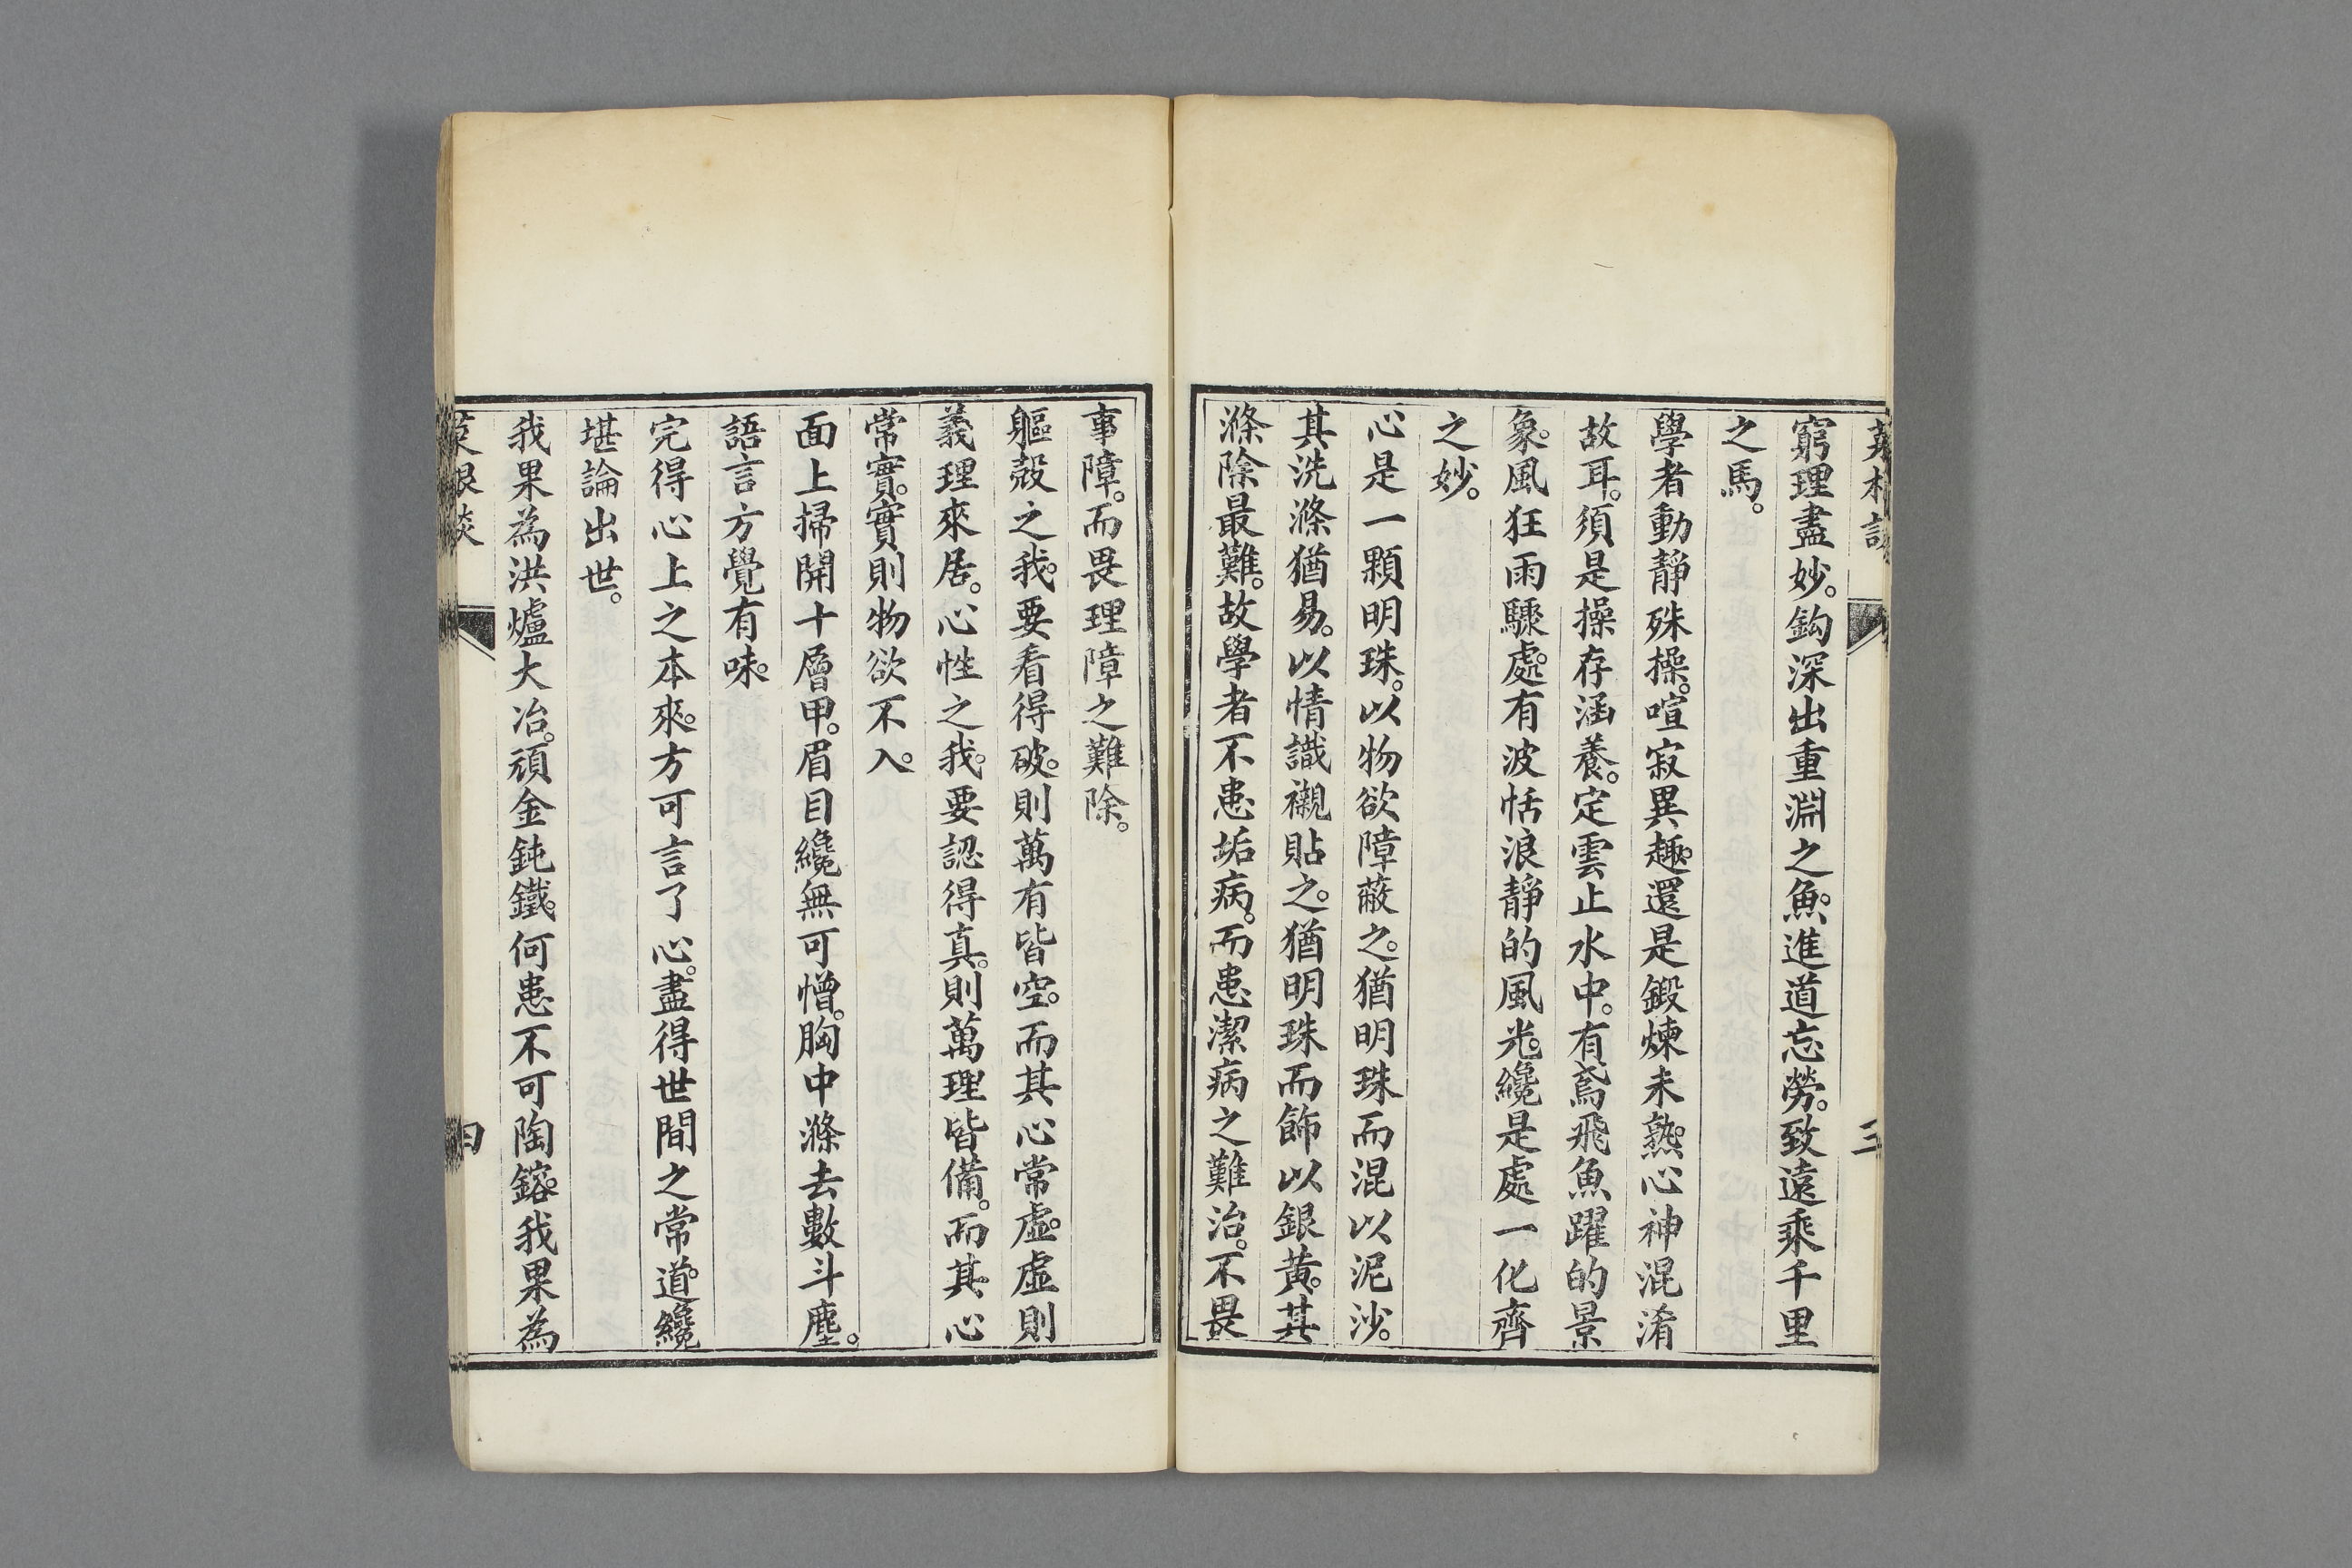 菜根談
三
窮理盡妙。鈎深出重淵之魚。進道忘勞。致遠乘千里
之馬。
學者動靜殊操。喧寂異趣。還是鍛煉未熟。心神混淆
故耳。須是操存涵養。定雲止水中。有鳶飛魚躍的景
象。風狂雨驟處。有波恬浪靜的風光。纔是處一化齊
之妙。
心是一顆明珠。以物欲障蔽之。猶明珠而混以泥沙。
其洗滌猶易。以情識襯貼之。猶明珠而飾以銀黃。其
滌除最難。故學者不患垢病。而患潔病之難治。不畏
事障。而畏理障之難除。
軀殼之我。要看得破。則萬有皆空。而其心常虛。虛則
義理來居。心性之我。要認得真。則萬理皆備。而其心
常實。實則物欲不入。
面上掃開十層甲。眉目纔無可憎。胸中滌去數斗塵。
語言方覺有味。
完得心上之本來。方可言了心。盡得世間之常道。纔
堪論出世。
我果為洪爐大冶。頑金鈍鐵。何患不可陶鎔。我果為
菜根談
四